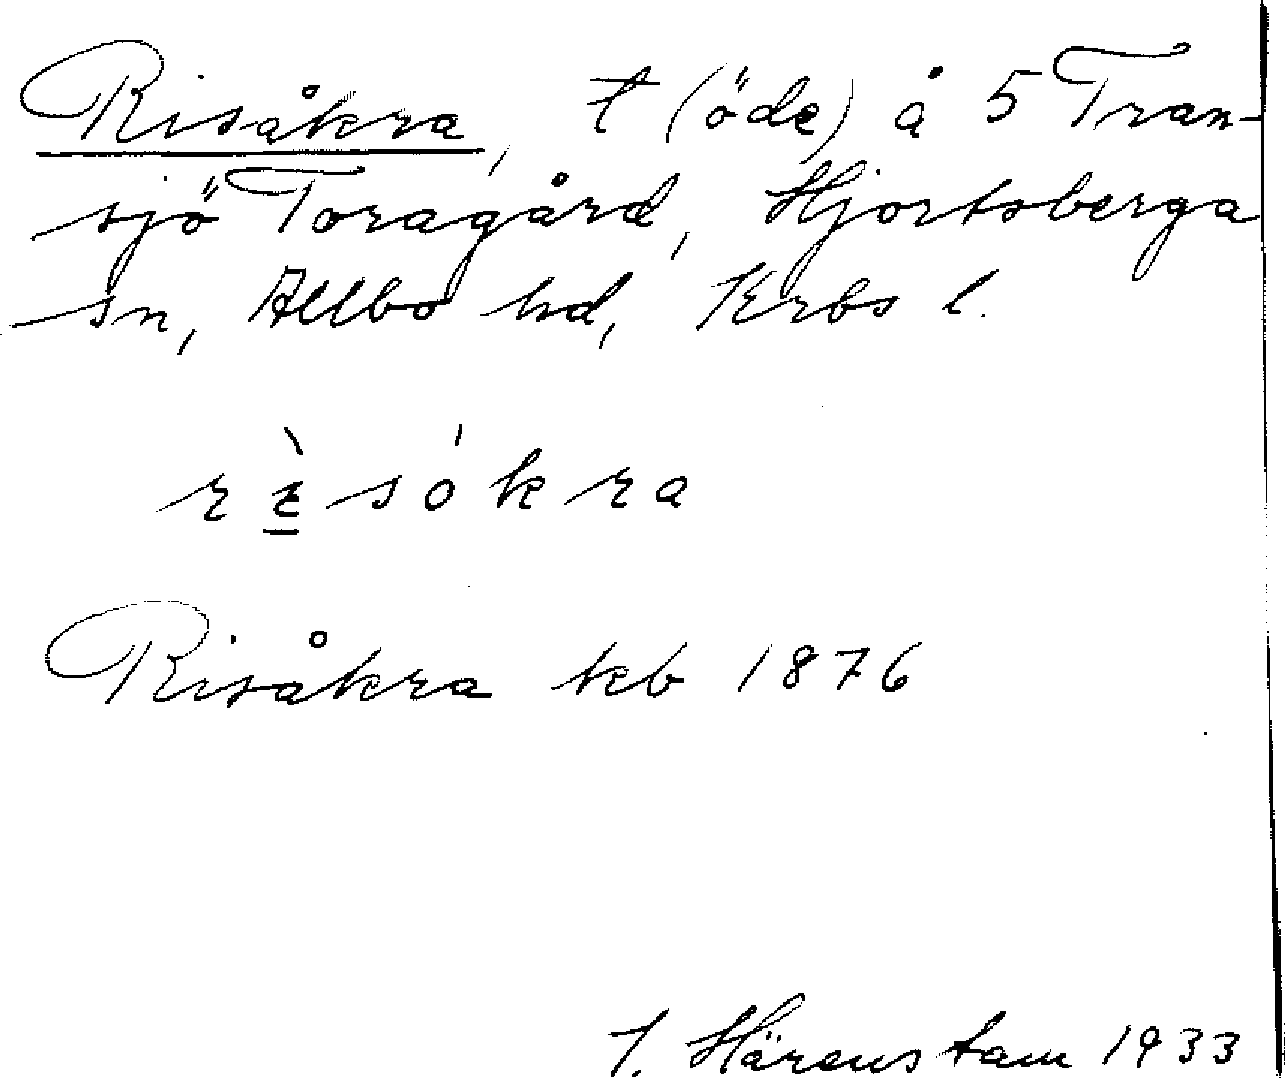 Risåkra, t (öde) å 5 Tran-
sjö Toragård, Hjortsberga
sn, Allbo hd, Krbs l.
rὲ̱sókra
Risåkra kb 1876
J. Härenstam 1933